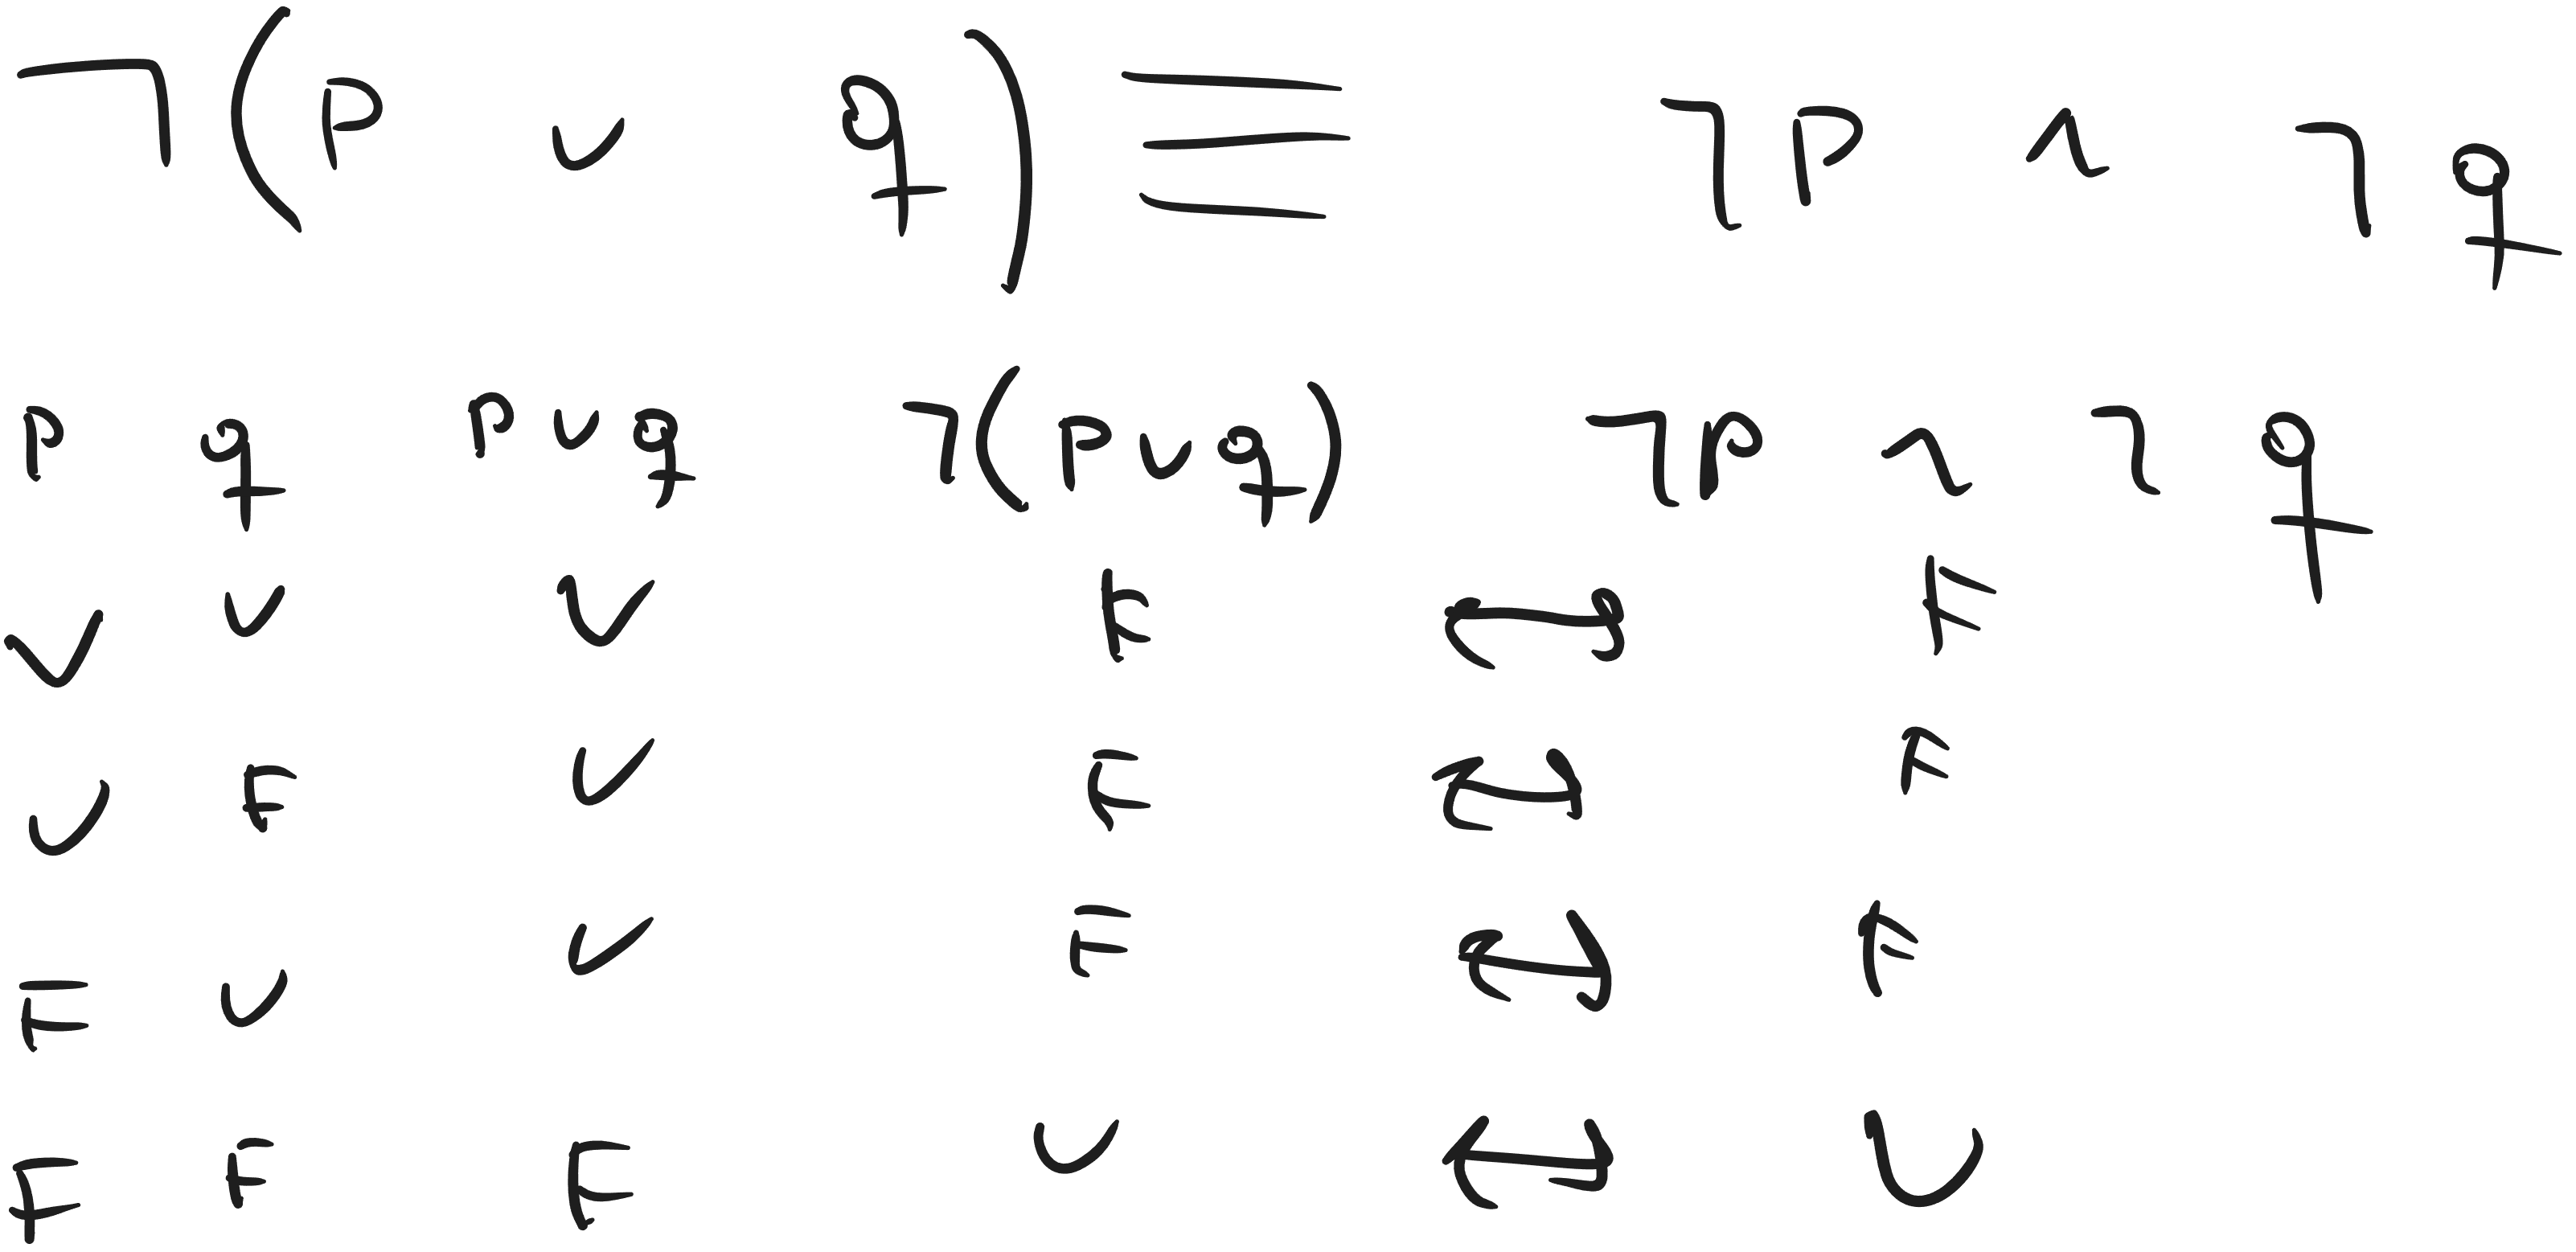 ¬(p ∨ q) ≡ ¬p ∧ ¬q
p q p ∨ q ¬(p ∨ q) ¬p ∧ ¬q
V V V F ↔ F
V F V F ↔ F
F V V F ↔ F
F F F V ↔ V